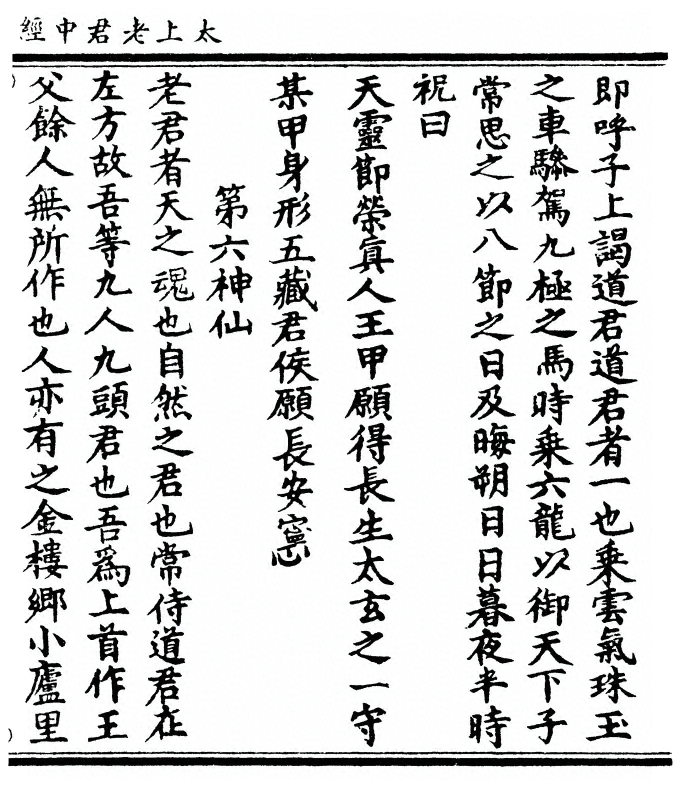 太上老君中經
即呼子上謁道君道君者一也乘雲氣珠玉
之車驂駕九極之馬時乘六龍以御天下子
常思之以八節之日及晦朔日日暮夜半時
祝曰
天靈節榮眞人王甲願得長生太玄之一守
某甲身形五藏君侯願長安寧
第六神仙
老君者天之魂也自然之君也常侍道君在
左方故吾等九人九頭君也吾爲上首作王
父餘人無所作也人亦有之金樓鄉小廬里